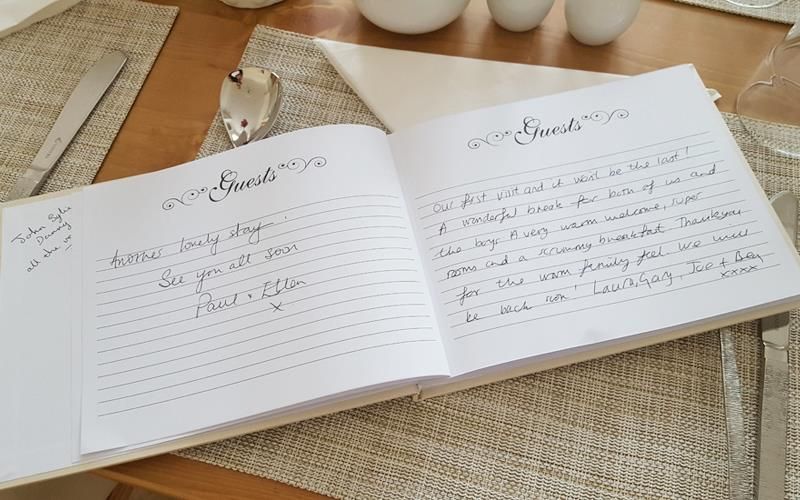 John Sylvia
Danny
all the
Guests
Another lonely stay.
See you all soon
Paul + Ellen
x
Guests
Our first visit and it won't be the last!
A wonderful break for both of us and
the boys. A very warm welcome, super
rooms and a scrummy breakfast. Thankyou
for the warm family feel. We will
be back soon! Laura, Gary, Joe + Ben
xxxx